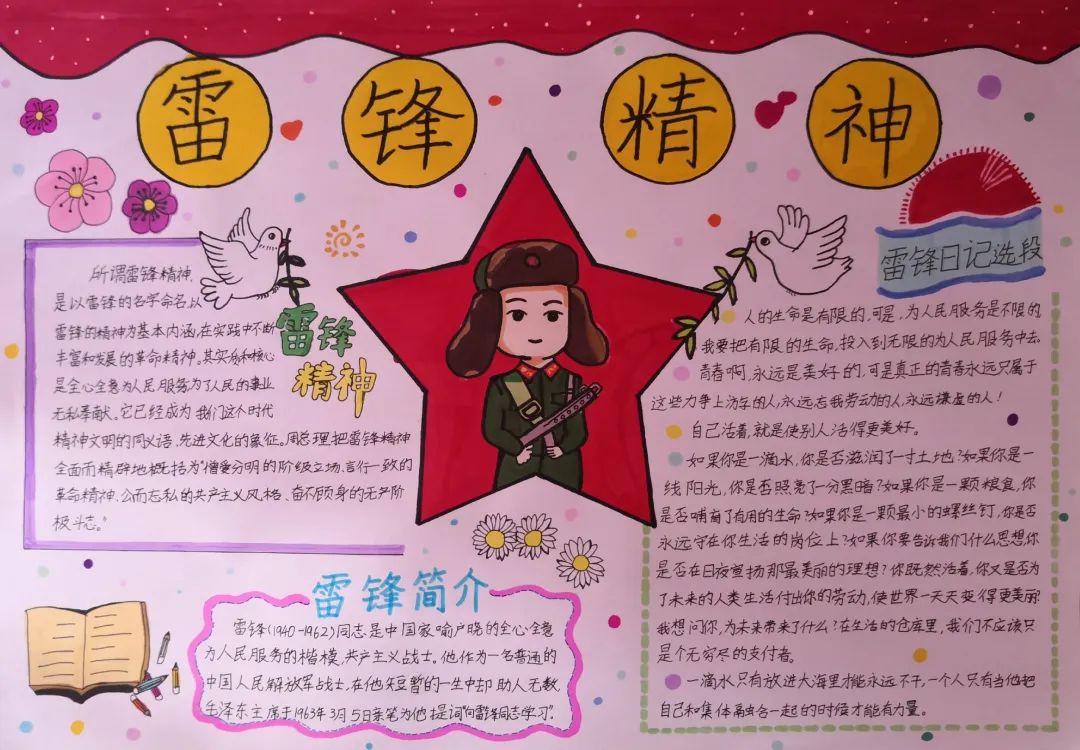 雷锋精神
所谓雷锋精神,
是以雷锋的名字命名,以
雷锋的精神为基本内涵,在实践中不断
丰富和发展的革命精神。其实质和核心
是全心全意为人民服务,为了人民的事业
无私奉献。它已经成为我们这个时代
精神文明的同义语、先进文化的象征。周总理把雷锋精神
全面而精辟地概括为“憎爱分明的阶级立场、言行一致的
革命精神、公而忘私的共产主义风格、奋不顾身的无产阶
极斗志。”
雷锋
精神
雷锋简介
雷锋(1940-1962)同志是中国家喻户晓的全心全意
为人民服务的楷模,共产主义战士。他作为一名普通的
中国人民解放军战士,在他短暂的一生中却助人无数,
毛泽东主席于1963年3月5日亲笔为他提词“向雷锋同志学习”.
雷锋日记选段
人的生命是有限的,可是,为人民服务是不限的
我要把有限的生命,投入到无限的为人民服务中去.
青春啊,永远是美好的,可是真正的青春永远只属于
这些力争上游的人,永远忘我劳动的人,永远谦虚的人!
自己活着,就是使别人活得更美好。
如果你是一滴水,你是否滋润了一寸土地?如果你是一
线阳光,你是否照亮了一分黑暗?如果你是一颗粮食,你
是否哺育了有用的生命?如果你是一颗最小的螺丝钉,你是否
永远守在你生活的岗位上?如果你要告诉我们什么思想,你
是否在日夜宣扬那最美丽的理想?你既然活着,你又是否为
了未来的人类生活付出你的劳动,使世界一天天变得更美丽
我想问你,为未来带来了什么?在生活的仓库里,我们不应该只
是个无穷尽的支付者。
一滴水只有放进大海里才能永远不干,一个人只有当他把
自己和集体融合一起的时候才能有力量。